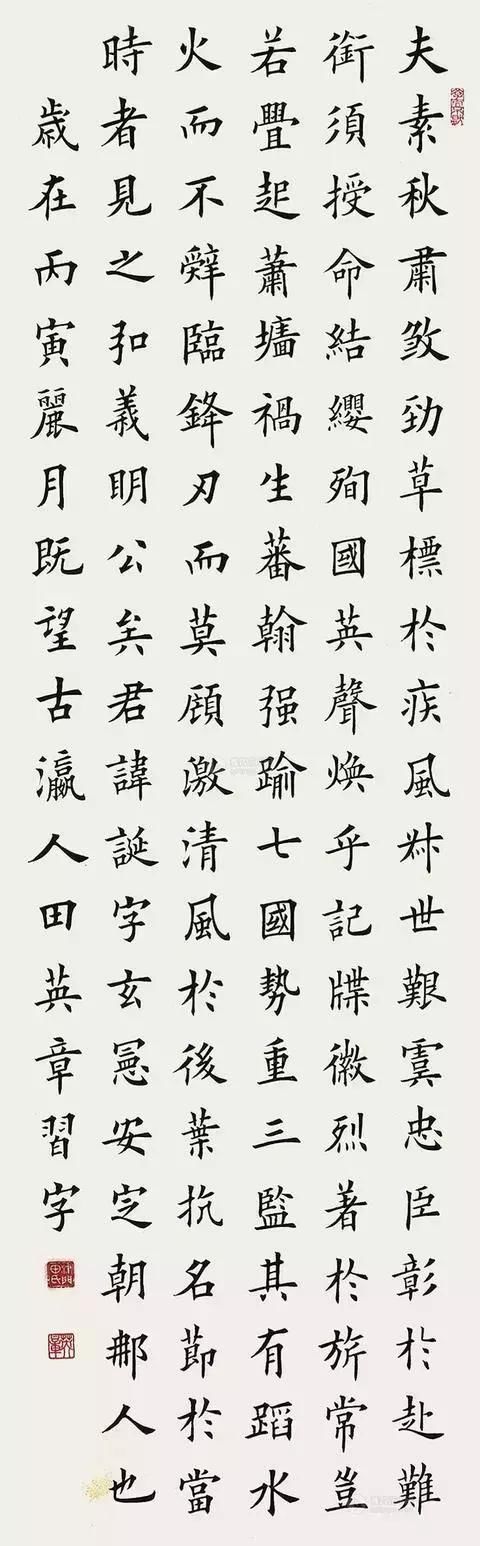 夫素秋肅煞勁草標於疾風叔世艱虞忠臣彰於赴難
銜須授命結纓殉國英聲煥乎記牒徽烈著於旂常豈
若舋起蕭墻禍生蕃翰强踰七國勢重三監其有蹈水
火而不辭臨鋒刃而莫顧激清風於後葉抗名節於當
時者見之弘義明公矣君諱誕字玄憲安定朝那人也
歲在丙寅麗月既望古瀛人田英章習字